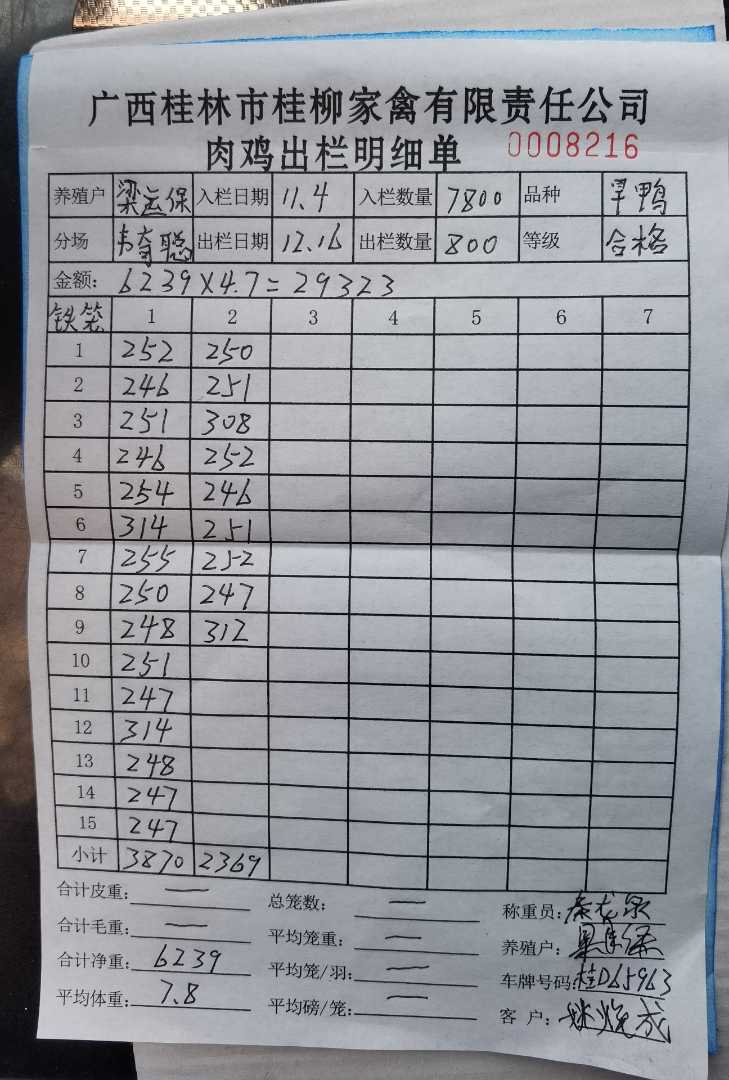 广西桂林市桂柳家禽有限责任公司
肉鸡出栏明细单 0008216
养殖户 梁运保 入栏日期 11.4 入栏数量 7800 品种 旱鸭
分场 韦奇聪 出栏日期 12.16 出栏数量 800 等级 合格
金额: 6239×4.7=29323
铁笼 1 2 3 4 5 6 7
1 252 250
2 246 251
3 251 308
4 246 252
5 254 246
6 314 251
7 255 252
8 250 247
9 248 312
10 251
11 247
12 314
13 248
14 247
15 247
小计 3870 2369
合计皮重: — 总笼数: — 称重员:
合计毛重: — 平均笼重: — 养殖户:
合计净重: 6239 平均笼/羽: — 车牌号码: 桂D65963
平均体重: 7.8 平均磅/笼: — 客户: